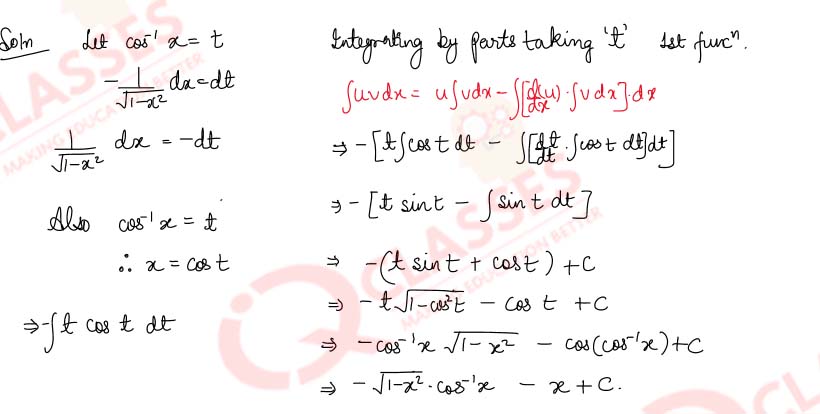 Soln Let cos⁻¹ x = t
- 1/√1-x² dx = dt
1/√1-x² dx = -dt
Also cos⁻¹ x = t
∴ x = cos t
⇒ -∫ t cos t dt
Integrating by parts taking 't' 1st funcⁿ.
∫uvdx = u∫vdx - ∫[d/dx(u) · ∫vdx] · dx
⇒ -[t∫cos t dt - ∫[dt/dt · ∫cos t dt]dt]
⇒ -[t sin t - ∫ sin t dt]
⇒ -(t sin t + cos t) + C
⇒ - t√1-cos²t - cos t + C
⇒ -cos⁻¹x √1-x² - cos(cos⁻¹x) + C
⇒ -√1-x² · cos⁻¹x - x + C.
CLASSES
MAKING EDUCATION BETTER
CLASSES
MAKING EDUCATION BETTER